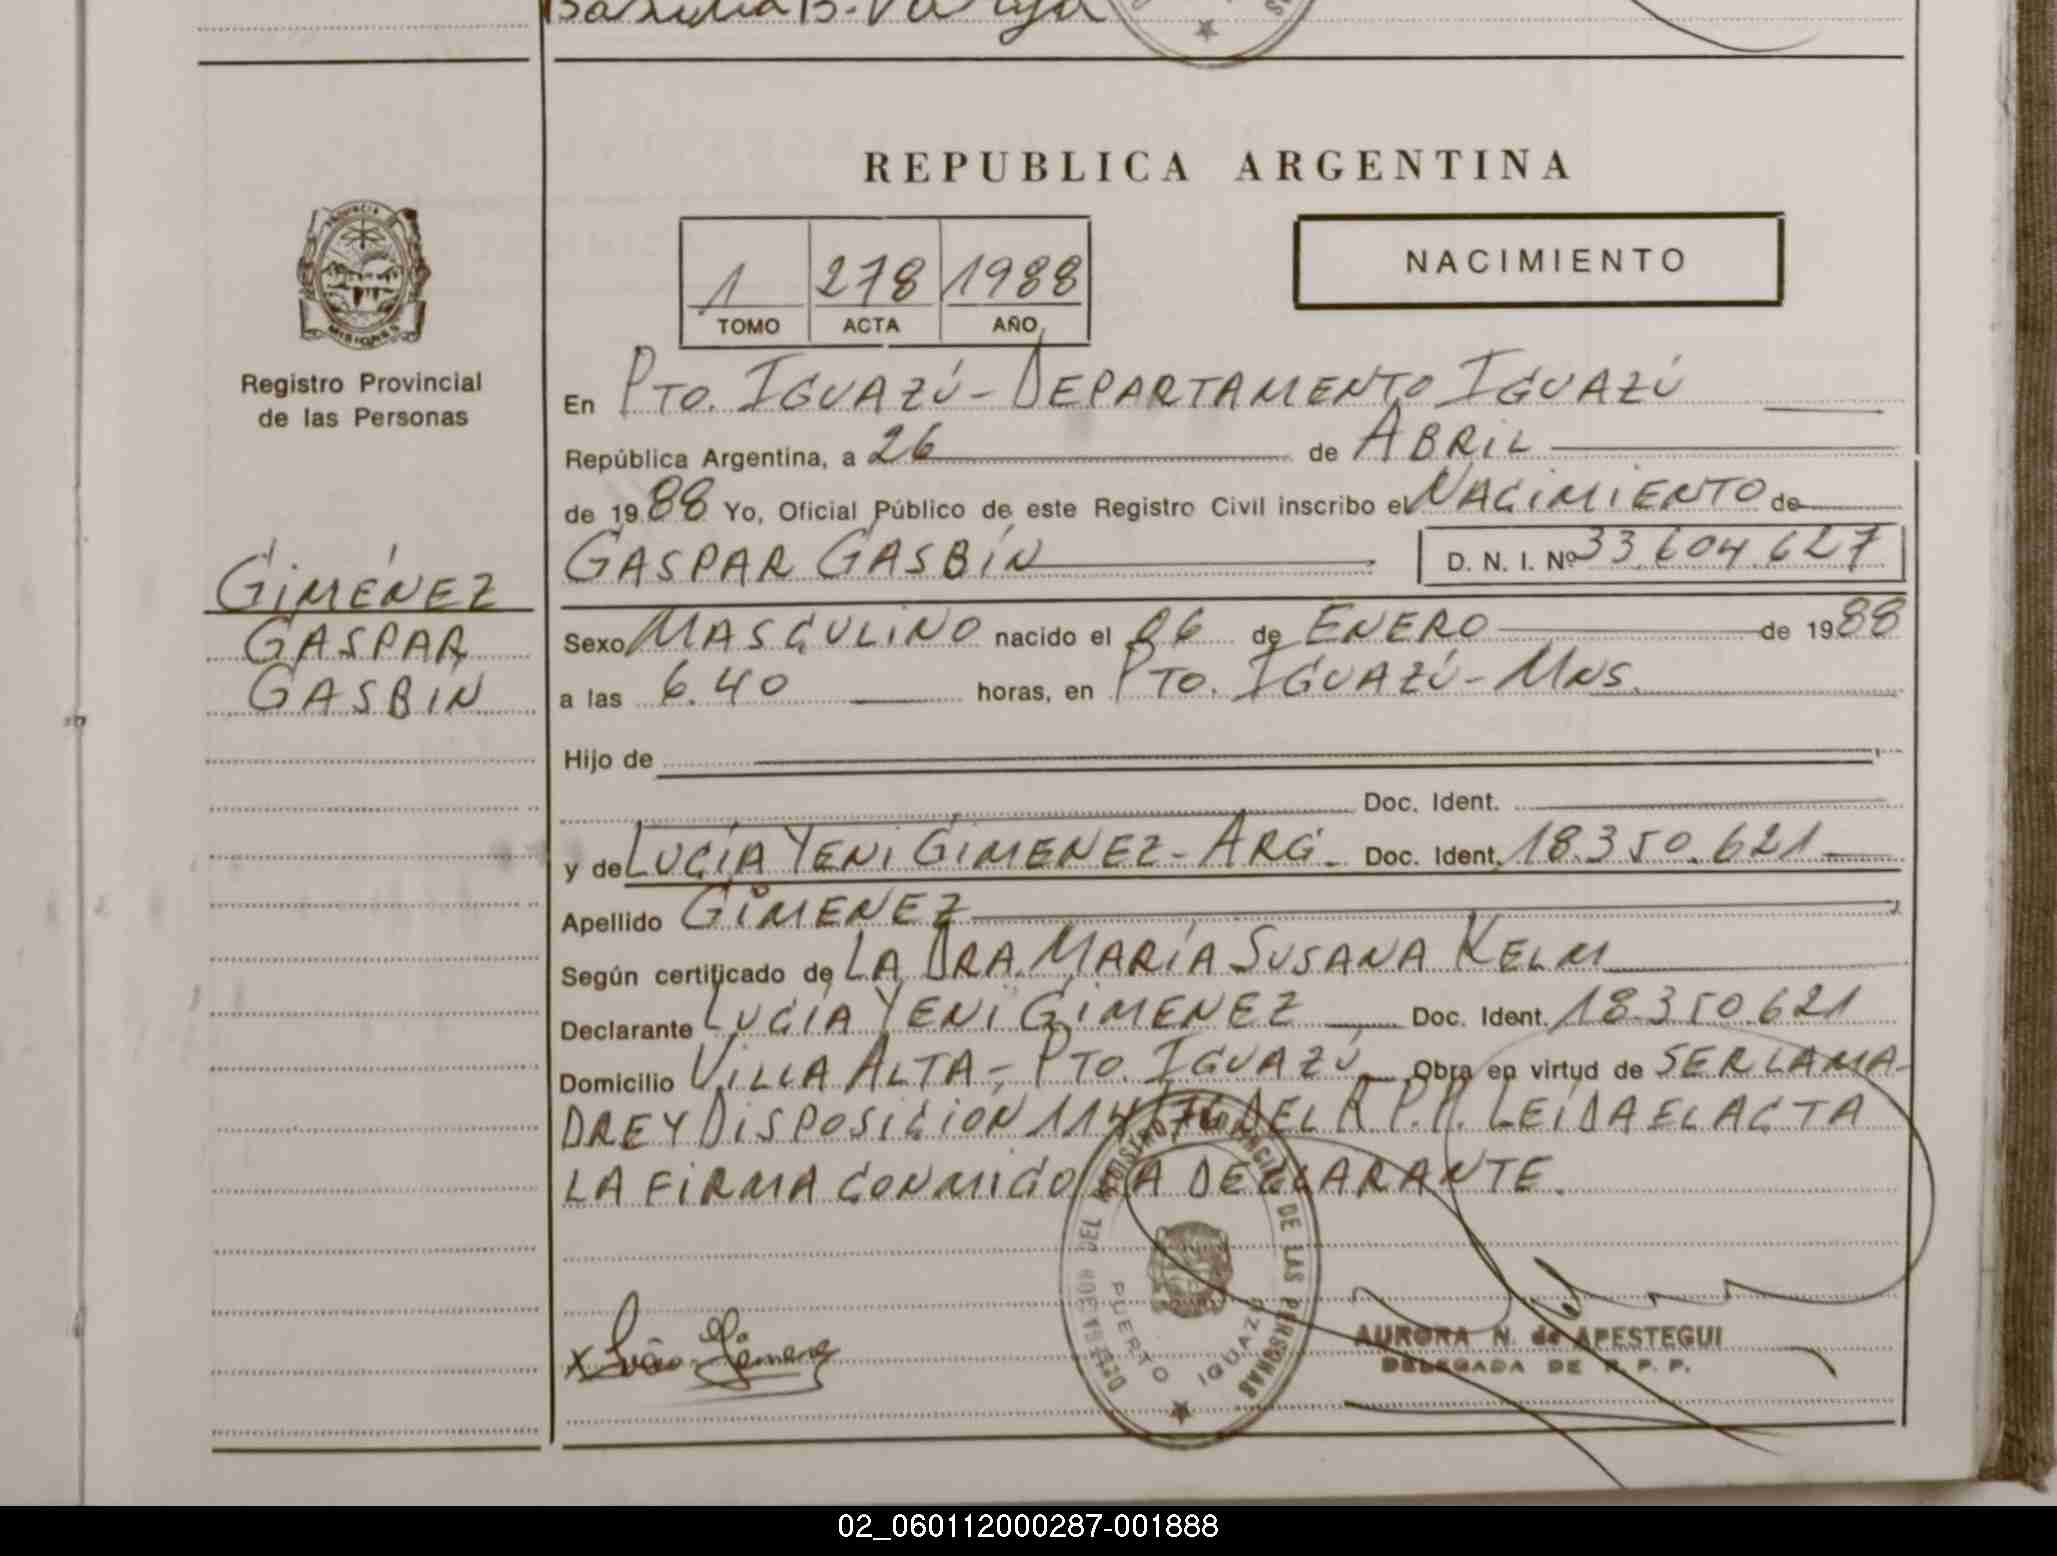 REPUBLICA ARGENTINA
1 278 1988
TOMO ACTA AÑO
NACIMIENTO
Registro Provincial
de las Personas
GIMÉNEZ
GASPAR
GASBÍN
En PTO. IGUAZÚ - DEPARTAMENTO IGUAZÚ
República Argentina, a 26 de ABRIL
de 1988 Yo, Oficial Público de este Registro Civil inscribo el NACIMIENTO de
GASPAR GASBÍN D. N. I. Nº 33.604.627
Sexo MASCULINO nacido el 06 de ENERO de 1988
a las 6.40 horas, en PTO. IGUAZÚ - MNS.
Hijo de
Doc. Ident.
y de LUCÍA YENI GIMENEZ - ARG. Doc. Ident. 18.350.621
Apellido GIMENEZ
Según certificado de LA DRA. MARÍA SUSANA KELM
Declarante LUCÍA YENI GIMENEZ Doc. Ident. 18.350.621
Domicilio VILLA ALTA - PTO. IGUAZÚ Obra en virtud de SER LA MA-
DRE Y DISPOSICIÓN 114/76 DEL R.P.P. LEÍDA EL ACTA
LA FIRMA CONMIGO LA DECLARANTE.
DEL REGISTRO PROVINCIAL DE LAS PERSONAS
PUERTO IGUAZU
AURORA N. de APESTEGUI
DELEGADA DE R. P. P.
02_060112000287-001888